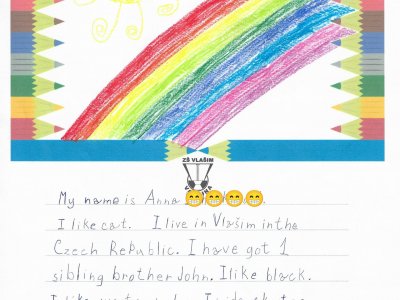 ZŠ VLAŠIM
My name is Anna
I like cat. I live in Vlašim in the
Czech Republic. I have got 1
sibling brother John. I like black.